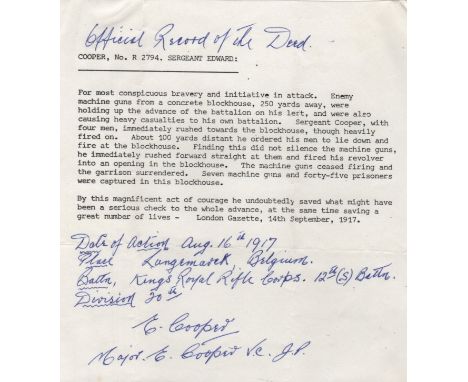 Official Record of the Deed.
COOPER, No. R 2794. SERGEANT EDWARD:
For most conspicuous bravery and initiative in attack. Enemy
machine guns from a concrete blockhouse, 250 yards away, were
holding up the advance of the battalion on his left, and were also
causing heavy casualties to his own battalion. Sergeant Cooper, with
four men, immediately rushed towards the blockhouse, though heavily
fired on. About 100 yards distant he ordered his men to lie down and
fire at the blockhouse. Finding this did not silence the machine guns,
he immediately rushed forward straight at them and fired his revolver
into an opening in the blockhouse. The machine guns ceased firing and
the garrison surrendered. Seven machine guns and forty-five prisoners
were captured in this blockhouse.
By this magnificent act of courage he undoubtedly saved what might have
been a serious check to the whole advance, at the same time saving a
great number of lives - London Gazette, 14th September, 1917.
Date of Action Aug. 16th 1917.
Place Langemarck, Belgium.
Battn, Kings Royal Rifle Corps. 12th (S) Battn.
Division 20th
E. Cooper
Major. E. Cooper V.C. J.P.